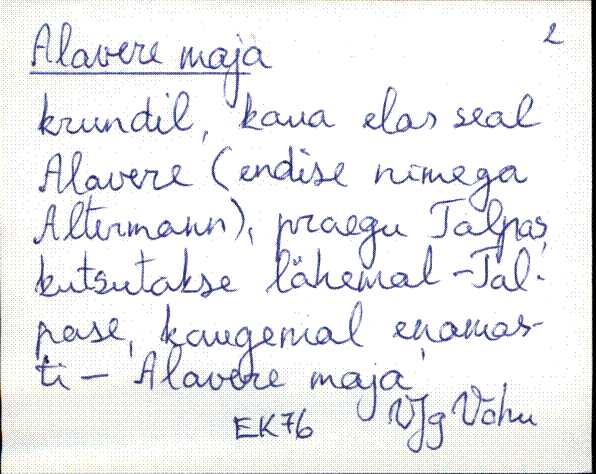 Alavere maja 2
krundil, kaua elas seal
Alavere (endise nimega
Altermann), praegu Talpas,
kutsutakse lähemal - Tal-
pase, kaugemal enamas-
ti - Alavere maja
EK76 VJg Võhu